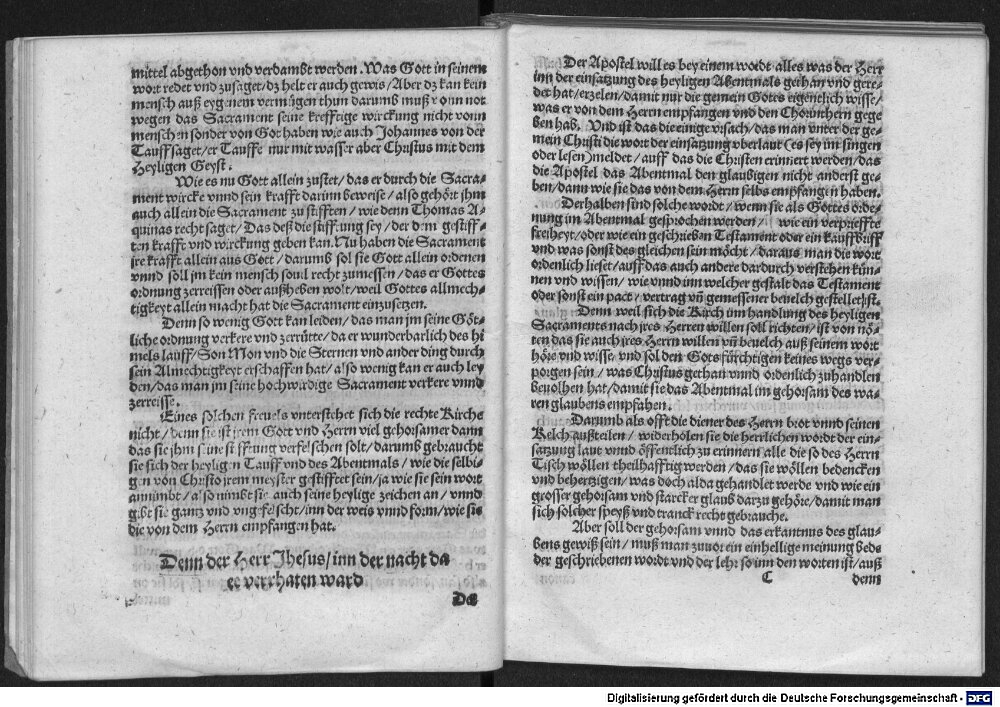 mittel abgethon vnd verdambt werden. Was Gott in seinem
wort redet vnd zusaget/dz helt er auch gewis/Aber dz kan kein
mensch auß eygenem vermügen thun darumb muß vonn not
wegen das Sacrament seine krefftige wirckung nicht vonn
menschen sonder von Got haben wie auch Johannes von der
Tauff saget/er Tauffe nur mit wasser aber Christus mit dem
Heyligen Geyst.
Wie es nu Gott allein zustet/das er durch die Sacra-
ment wircke vnnd sein krafft darinn beweise/also gehört jhm
auch allein die Sacrament zu stifften/wie denn Thomas A-
quinas recht saget/Das deß die stifftung sey/der dem gestiff-
ten krafft vnd wirckung geben kan. Nu haben die Sacrament
jre krafft allein aus Gott/darumb sol sie Gott allein ordenen
vnnd soll jm kein mensch souil recht zumessen/das er Gottes
ordnung zerreissen oder auffheben wolt/weil Gottes allmech-
tigkeyt allein macht hat die Sacrament einzusetzen.
Denn so wenig Gott kan leiden/das man jm seine Göt-
liche ordnung verkere vnd zerrütte/da er wunderbarlich des hi
mels lauff/Son Mon vnd die Sternen vnd ander ding durch
sein Almechtigkeyt erschaffen hat/also wenig kan er auch ley
den/das man jm seine hochwirdige Sacrament verkere vnnd
zerreisse.
Eines solchen freuels vnterstehet sich die rechte Kirche
nicht/denn sie ist jrem Gott vnd Herrn viel gehorsamer dann
das sie jhm seine stifftung verfelschen solt/darumb gebraucht
sie sich der heyligen Tauff vnd des Abentmals/wie die selbi-
gen von Christo jrem meyster gestifftet sein/ja wie sie sein wort
annimbt/also nimbt sie auch seine heylige zeichen an/vnnd
gibt sie gantz vnd vngefelscht/inn der weis vnnd form/wie sie
die von dem Herrn empfangen hat.
Denn der Herr Jhesus/inn der nacht da
er verrhaten ward
Der Apostel will es bey einem wordt alles was der Herr
inn der einsatzung des heyligen Abentmals gethan vnd gere-
det hat/erzelen/damit nur die gemein Gottes eigenlich wisse/
was er von dem Herrn empfangen vnd den Chorinthern gege
ben hab. Vnd ist das die einige vrsach/das man vnter der ge-
mein Christi die wort der einsatzung vberlaut (es sey im singen
oder lesen) meldet/auff das die Christen erinnert werden/das
die Apostel das Abentmal den glaubigen nicht anderst ge-
ben/dann wie sie das von dem Herrn selbs empfangen haben.
Derhalben sind solche wordt/wenn sie als Gottes orde-
nung im Abentmal gesprochen werden/wie ein verprieffte
freiheyt/oder wie ein geschrieben Testament oder ein kauffbrieff
vnd was sonst des gleichen sein möcht/daraus man die wort
ordenlich lieset/auff das auch andere dardurch verstehen kün-
nen vnd wissen/wie vnnd inn welcher gestalt das Testament
oder sonst ein pact/vertrag vñ gemessener beuelch gestellet ist.
Denn weil sich die Kirch inn handlung des heyligen
Sacraments nach jres Herren willen soll richten/ist von nö-
ten das sie auch jres Herren willen vñ beuelch auß seinem wort
höre vnd wisse/vnd sol den Gots fürchtigen keines wegs ver-
porgen sein/was Christus gethan vnnd ordenlich zuhandlen
beuolhen hat/damit sie das Abentmal im gehorsam des wa-
ren glaubens empfahen.
Darumb als offt die diener des Herrn brot vnnd seinen
Kelch außteilen/widerholen sie die herrlichen wordt der ein-
satzung laut vnnd öffentlich zu erinnern alle die so des Herrn
Tisch wöllen theilhafftig werden/das sie wöllen bedencken
vnd behertzigen/was doch alda gehandlet werde vnd wie ein
grosser gehorsam vnd starcker glaub darzu gehöre/damit man
sich solcher speyß vnd tranck recht gebrauche.
Aber soll der gehorsam vnnd das erkantnus des glau-
bens gewiß sein/muß man zuuor ein einhellige meinung beds
der geschriebenen wordt vnd der lehr so inn den worten ist/auß
C denn
Digitalisierung gefördert durch die Deutsche Forschungsgemeinschaft - DFG